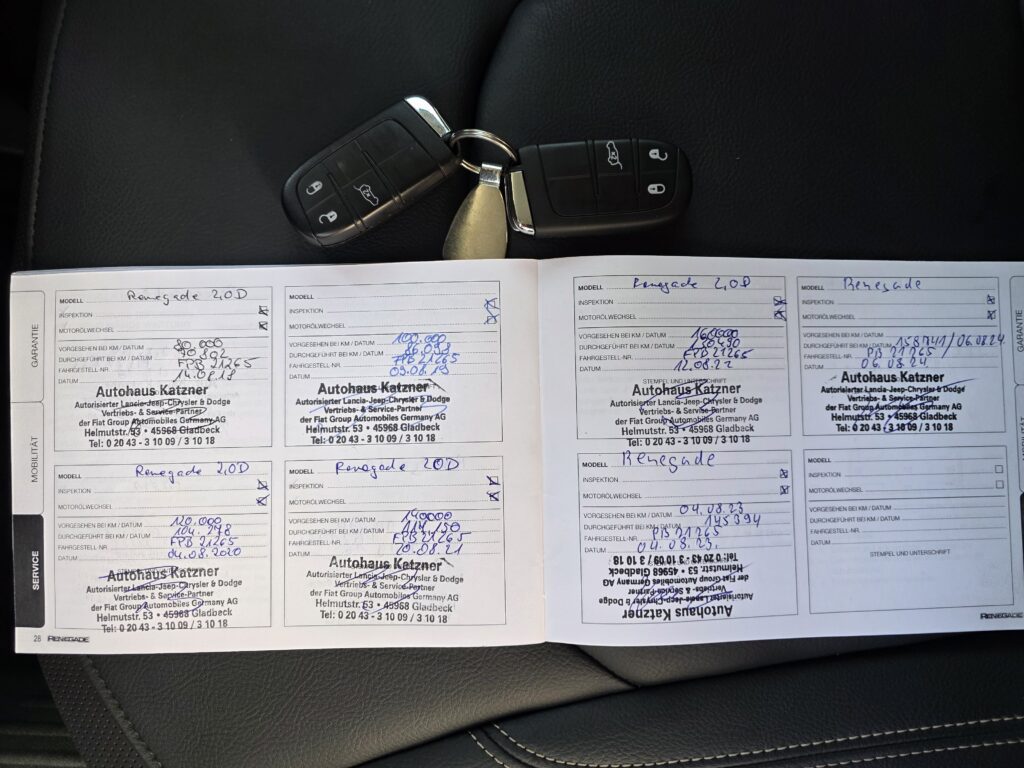 GARANTIE
MOBILITÄT
SERVICE
MODELL Renegade 2,0D
INSPEKTION
MOTORÖLWECHSEL
VORGESEHEN BEI KM / DATUM 80.000
DURCHGEFÜHRT BEI KM / DATUM
FAHRGESTELL-NR. FPB 21265
DATUM
Autohaus Katzner
Autorisierter Lancia-Jeep-Chrysler & Dodge
Vertriebs- & Service-Partner
der Fiat Group Automobiles Germany AG
Helmutstr. 53 • 45968 Gladbeck
Tel: 0 20 43 - 3 10 09 / 3 10 18
MODELL
INSPEKTION
MOTORÖLWECHSEL
VORGESEHEN BEI KM / DATUM 100.000
DURCHGEFÜHRT BEI KM / DATUM
FAHRGESTELL-NR. FPB 21265
DATUM 09.08.19
Autohaus Katzner
Autorisierter Lancia-Jeep-Chrysler & Dodge
Vertriebs- & Service-Partner
der Fiat Group Automobiles Germany AG
Helmutstr. 53 • 45968 Gladbeck
Tel: 0 20 43 - 3 10 09 / 3 10 18
MODELL Renegade 2,0D
INSPEKTION
MOTORÖLWECHSEL
VORGESEHEN BEI KM / DATUM 120.000
DURCHGEFÜHRT BEI KM / DATUM
FAHRGESTELL-NR. FPB 21265
DATUM 04.08.2020
Autohaus Katzner
Autorisierter Lancia-Jeep-Chrysler & Dodge
Vertriebs- & Service-Partner
der Fiat Group Automobiles Germany AG
Helmutstr. 53 • 45968 Gladbeck
Tel: 0 20 43 - 3 10 09 / 3 10 18
MODELL Renegade 2,0D
INSPEKTION
MOTORÖLWECHSEL
VORGESEHEN BEI KM / DATUM 140000
DURCHGEFÜHRT BEI KM / DATUM
FAHRGESTELL-NR. FPB 21265
DATUM 10.08.21
Autohaus Katzner
Autorisierter Lancia-Jeep-Chrysler & Dodge
Vertriebs- & Service-Partner
der Fiat Group Automobiles Germany AG
Helmutstr. 53 • 45968 Gladbeck
Tel: 0 20 43 - 3 10 09 / 3 10 18
28 RENEGADE
MODELL Renegade 2,0D
INSPEKTION
MOTORÖLWECHSEL
VORGESEHEN BEI KM / DATUM 160000
DURCHGEFÜHRT BEI KM / DATUM
FAHRGESTELL-NR. FPB 21265
DATUM 12.08.22
STEMPEL UND UNTERSCHRIFT
Autohaus Katzner
Autorisierter Lancia-Jeep-Chrysler & Dodge
Vertriebs- & Service-Partner
der Fiat Group Automobiles Germany AG
Helmutstr. 53 • 45968 Gladbeck
Tel: 0 20 43 - 3 10 09 / 3 10 18
MODELL Renegade
INSPEKTION
MOTORÖLWECHSEL
VORGESEHEN BEI KM / DATUM
DURCHGEFÜHRT BEI KM / DATUM 158741 / 06.08.24
FAHRGESTELL-NR. PB 21265
DATUM 06.08.24
Autohaus Katzner
Autorisierter Lancia-Jeep-Chrysler & Dodge
Vertriebs- & Service-Partner
der Fiat Group Automobiles Germany AG
Helmutstr. 53 • 45968 Gladbeck
Tel: 0 20 43 - 3 10 09 / 3 10 18
MODELL Renegade
INSPEKTION
MOTORÖLWECHSEL
VORGESEHEN BEI KM / DATUM 04.08.23
DURCHGEFÜHRT BEI KM / DATUM 145394
FAHRGESTELL-NR. PB 21265
DATUM 04.08.23.
Autohaus Katzner
Autorisierter Lancia-Jeep-Chrysler & Dodge
Vertriebs- & Service-Partner
der Fiat Group Automobiles Germany AG
Helmutstr. 53 • 45968 Gladbeck
Tel: 0 20 43 - 3 10 09 / 3 10 18
MODELL
INSPEKTION
MOTORÖLWECHSEL
VORGESEHEN BEI KM / DATUM
DURCHGEFÜHRT BEI KM / DATUM
FAHRGESTELL-NR.
DATUM
STEMPEL UND UNTERSCHRIFT
RENEGADE
GARANTIE